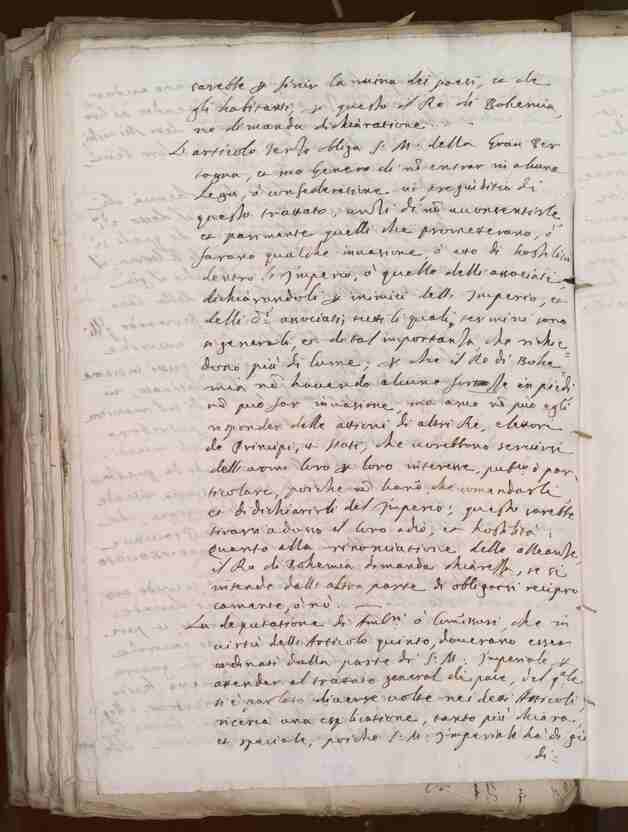 sarebbe per finir la ruina dei paesi, et de
gli habitanti, per questo il Re di Bohemia,
ne dimanda dichiaratione.
L'articolo Terzo obliga S. M. della Gran Ber
tagna, et suo Genero di nõ entrar in alcuna
Lega, ò confederatione
questo trattato, anzi di nõ acconsentirle
et parimente quelli che prometerano, ò
farano qualche invasione ò atto di hostilita
dentro l'Imperio, ò quello delli associati,
dichiarandoli per inimici dell' Imperio, et
delli d.i associati; tutti li quali termini sono
sì generali, et di tal importanza, che richie=
dono più di lume; per che il Re di Bohe=
mia nõ havendo alcune forze in piedi
nõ può far invasione, ma anco nõ può egli
risponder delle attioni di altri Re, elettori
de Principi, et Stati, che vorebbono servirsi
dell' armi loro per loro interesse, publico ò par
ticolare, poiche nõ hanno che comandarli
et di dichiarirli del Imperio; questo sarebbe
tirarsi adosso il loro odio, et hostilità;
Quanto alla renonciatione delle alleanze,
il Re di Bohemia dimanda chiarezza, se si
intende dall' altra parte di obligarsi recipro
camente, ò nò.
La deputatione di Amb.ri ò Comissari, che in
virtù dell' Articolo quinto, doverano esser
ordinati dalla parte di S. M. Imperiale per
attender al trattato general di pace, del q.ale
si è parlato diverse volte nei detti Articoli
ricerca una esplicatione, tanto più chiara,
et speciale, poiche S. M. Imperiale ha di già
di: